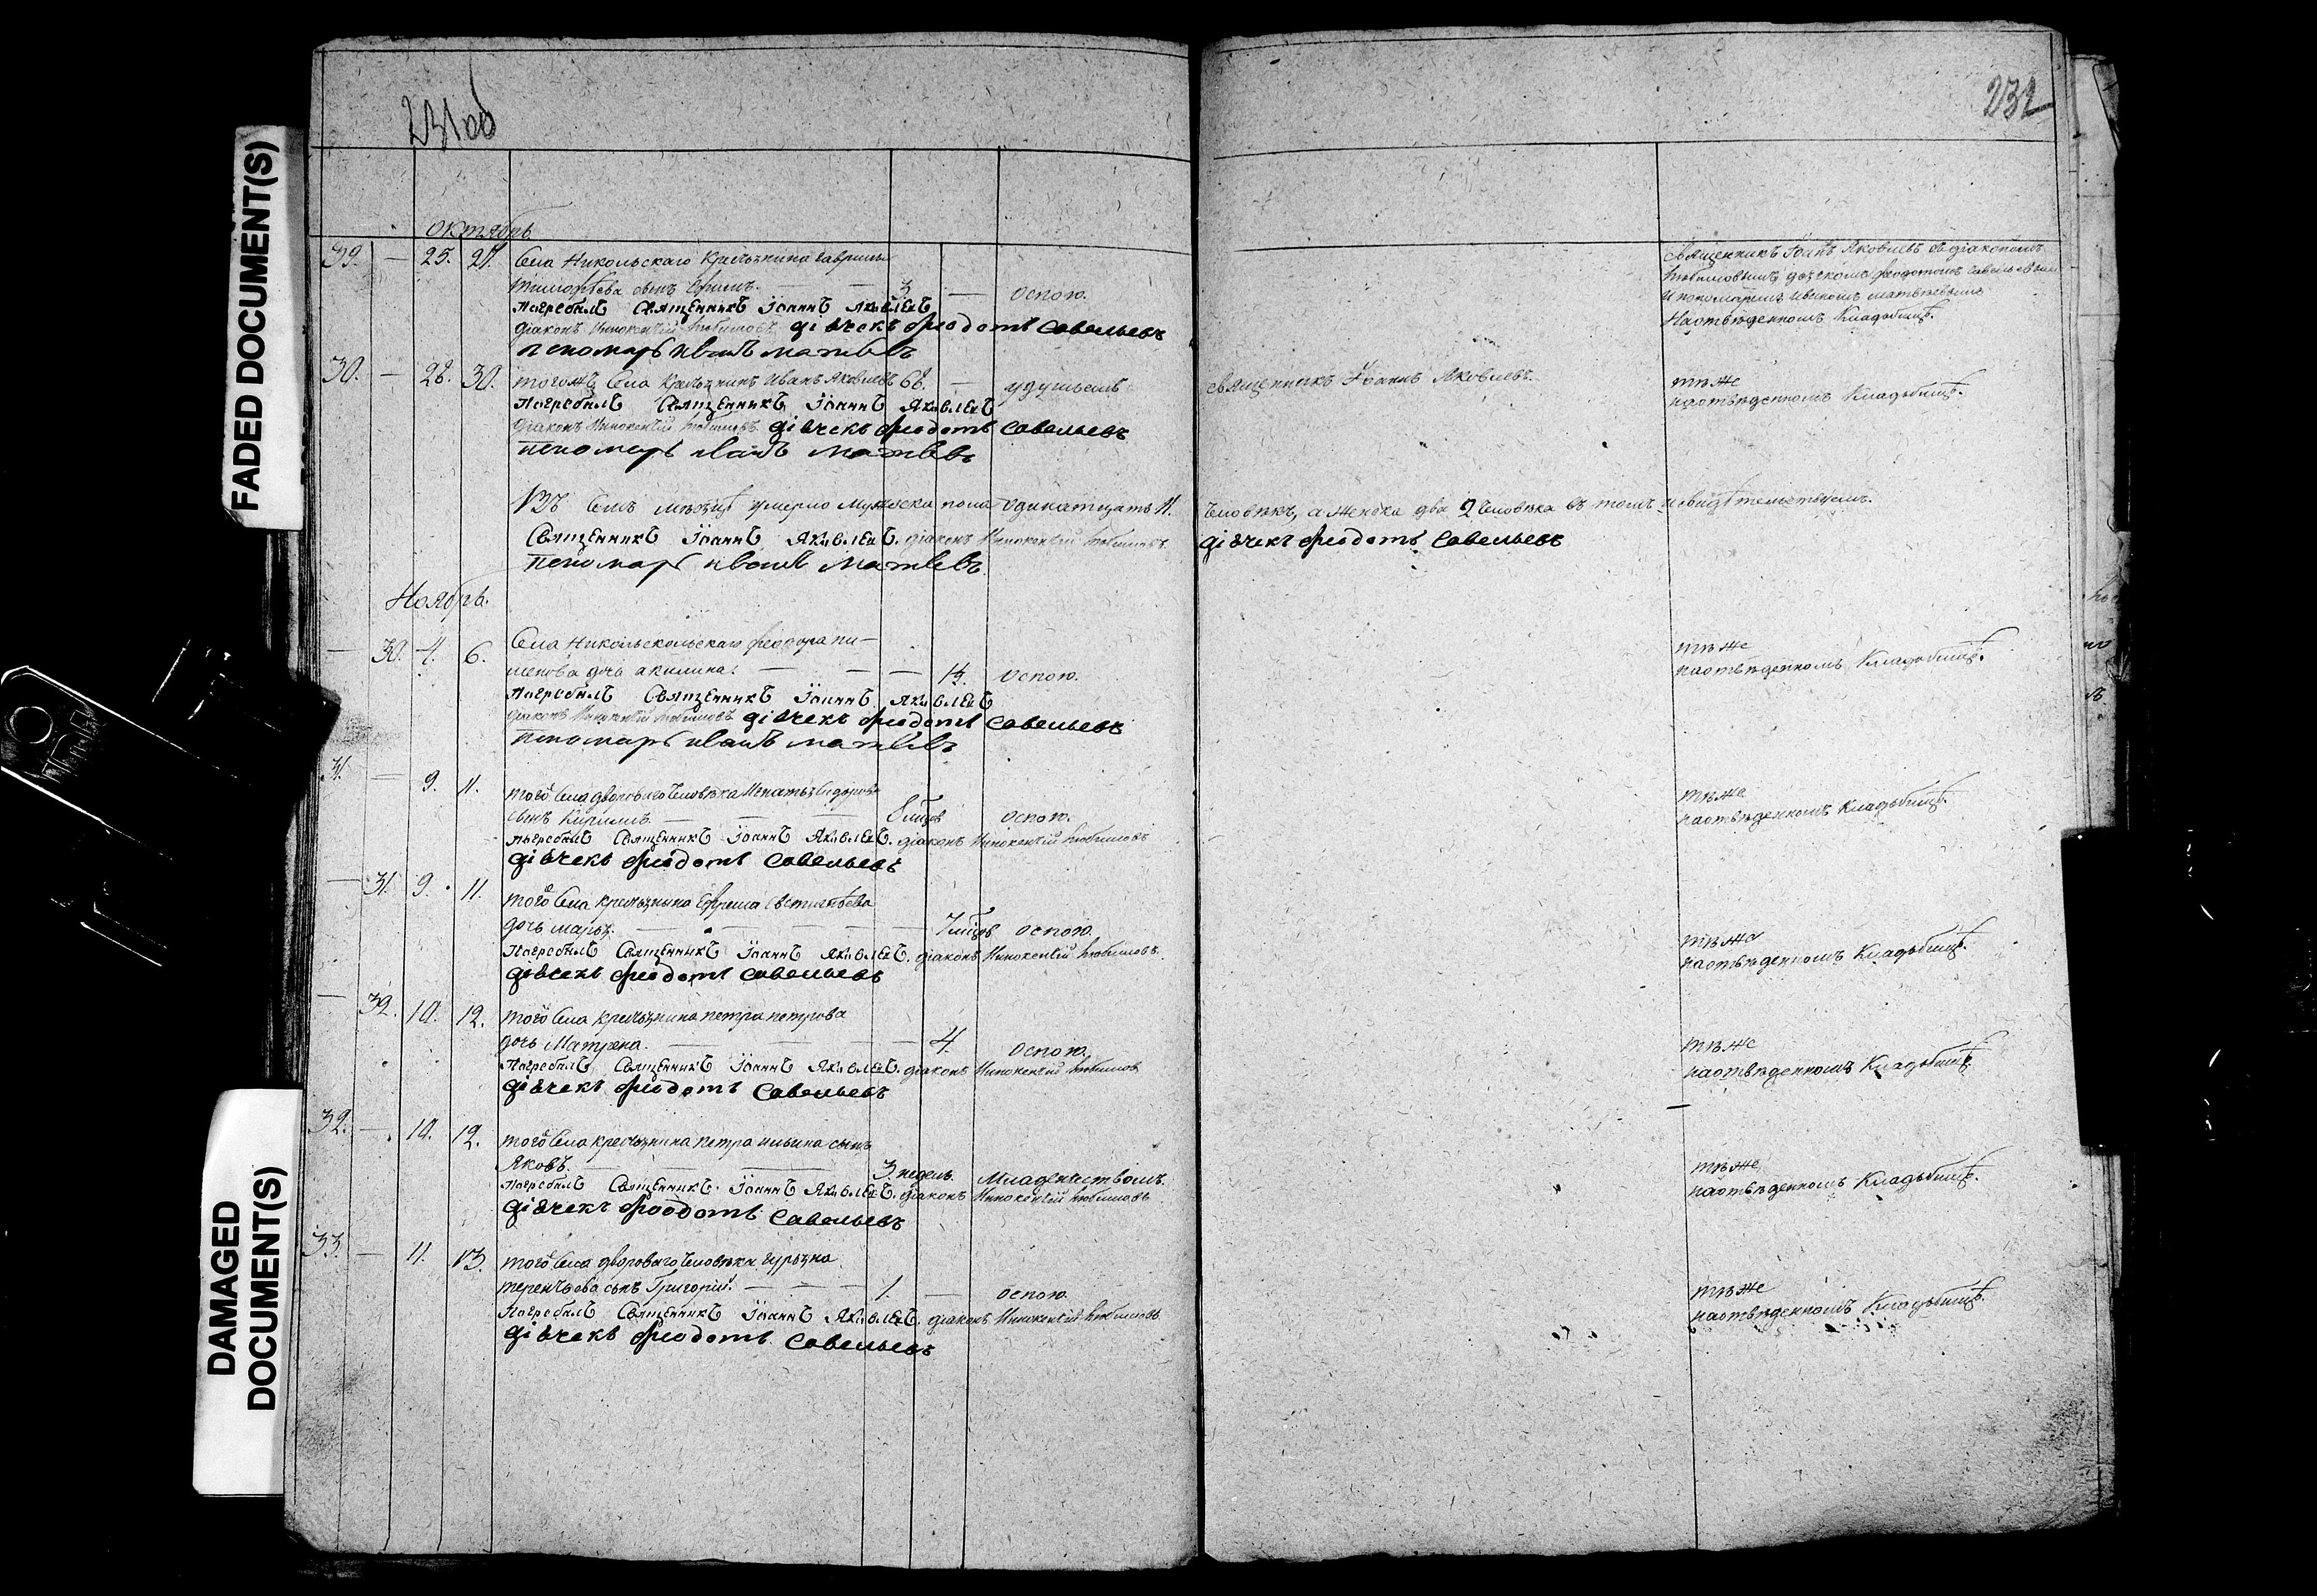 231 об
232
октябрь.
39. — 25. 27. Села Никольскаго Крестьянина Гаврилы
Тимофѣева сынъ Ефимъ. — — 3 — оспою.
Погребалъ Священникъ Іоаннъ Яковлевъ
діаконъ Иннокентій Любимовъ. дiячекъ Феодотъ Савельевъ
пономарь иванъ матвѣевъ
священникъ Іоаннъ Яковлевъ съ діакономъ
Любимовымъ дьячкомъ Феодотомъ Савельевымъ
и пономаремъ иваномъ матвѣевымъ
На отвѣденномъ Кладбищѣ.
30. — 28. 30. тогожъ Села Крестьянинъ Иванъ Яковлевъ 68. — удушьемъ
Погребалъ Священникъ Іоаннъ Яковлевъ
діаконъ Иннокентій Любимовъ. дiячекъ Феодотъ Савельевъ
пономарь иванъ матвѣевъ
священникъ Іоаннъ Яковлевъ.
тѣже
на отвѣденномъ Кладбищѣ.
Въ Семъ мѣсяцѣ умерло мужеска пола одинатцать 11. Человѣкъ, а женска два 2 Человѣка въ томъ и свидѣтельствуемъ.
Священникъ Іоаннъ Яковлевъ. діаконъ Иннокентій Любимовъ. дiячекъ Феодотъ Савельевъ
пономарь иванъ матвѣевъ.
Ноябрь.
— 30. 4. 6. Села Никольскольскаго Феодора пи-
менова дочь акилина. — — — оспою.
Погребалъ Священникъ Іоаннъ Яковлевъ
діаконъ Иннокентій Любимовъ дiячекъ Феодотъ Савельевъ
пономарь иванъ матвѣевъ
тѣже
на отвѣденномъ Кладбищѣ.
31. — 9. 11. того Села двороваго Человѣка Игнатья Сидорова
сынъ Кирилъ. — — — 8 мцов оспою.
погребалъ Священникъ Іоаннъ Яковлевъ. діаконъ Иннокентій Любимовъ
дiячекъ Феодотъ Савельевъ
тѣже
на отвѣденномъ Кладбищѣ.
— 31. 9. 11. того Села крестьянина Ефрема Евстигнѣева
дочь марья. — — — — 7 мцов оспою.
Погребалъ Священникъ Іоаннъ Яковлевъ. діаконъ Иннокентій Любимовъ.
дiячекъ Феодотъ Савельевъ
тѣже
на отвѣденномъ Кладбищѣ.
— 32. 10. 12. того Села крестьянина петра петрова
дочь Матрена. — — — — 4. оспою.
Погребалъ Священникъ Іоаннъ Яковлевъ. діаконъ Иннокентій Любимов
дiячекъ Феодотъ Савельевъ
тѣже
на отвѣденномъ Кладбищѣ.
32. — 10. 12. того Села крестьянина петра ильина сынъ
Яковъ. — — — 3 недель. Младенчествомъ.
Погребалъ Священникъ Іоаннъ Яковлевъ. діаконъ Иннокентій Любимовъ
дiячекъ Феодотъ Савельевъ
тѣже
на отвѣденномъ Кладбищѣ.
33. — 11. 13. того Села двороваго Человѣка
терентьева сынъ Григорий. — — — 1. — оспою.
Погребалъ Священникъ Іоаннъ Яковлевъ. діаконъ Иннокентій Любимовъ
дiячекъ Феодотъ Савельевъ
тѣже
на отвѣденномъ Кладбищѣ.
FADED DOCUMENT(S)
DAMAGED
DOCUMENT(S)